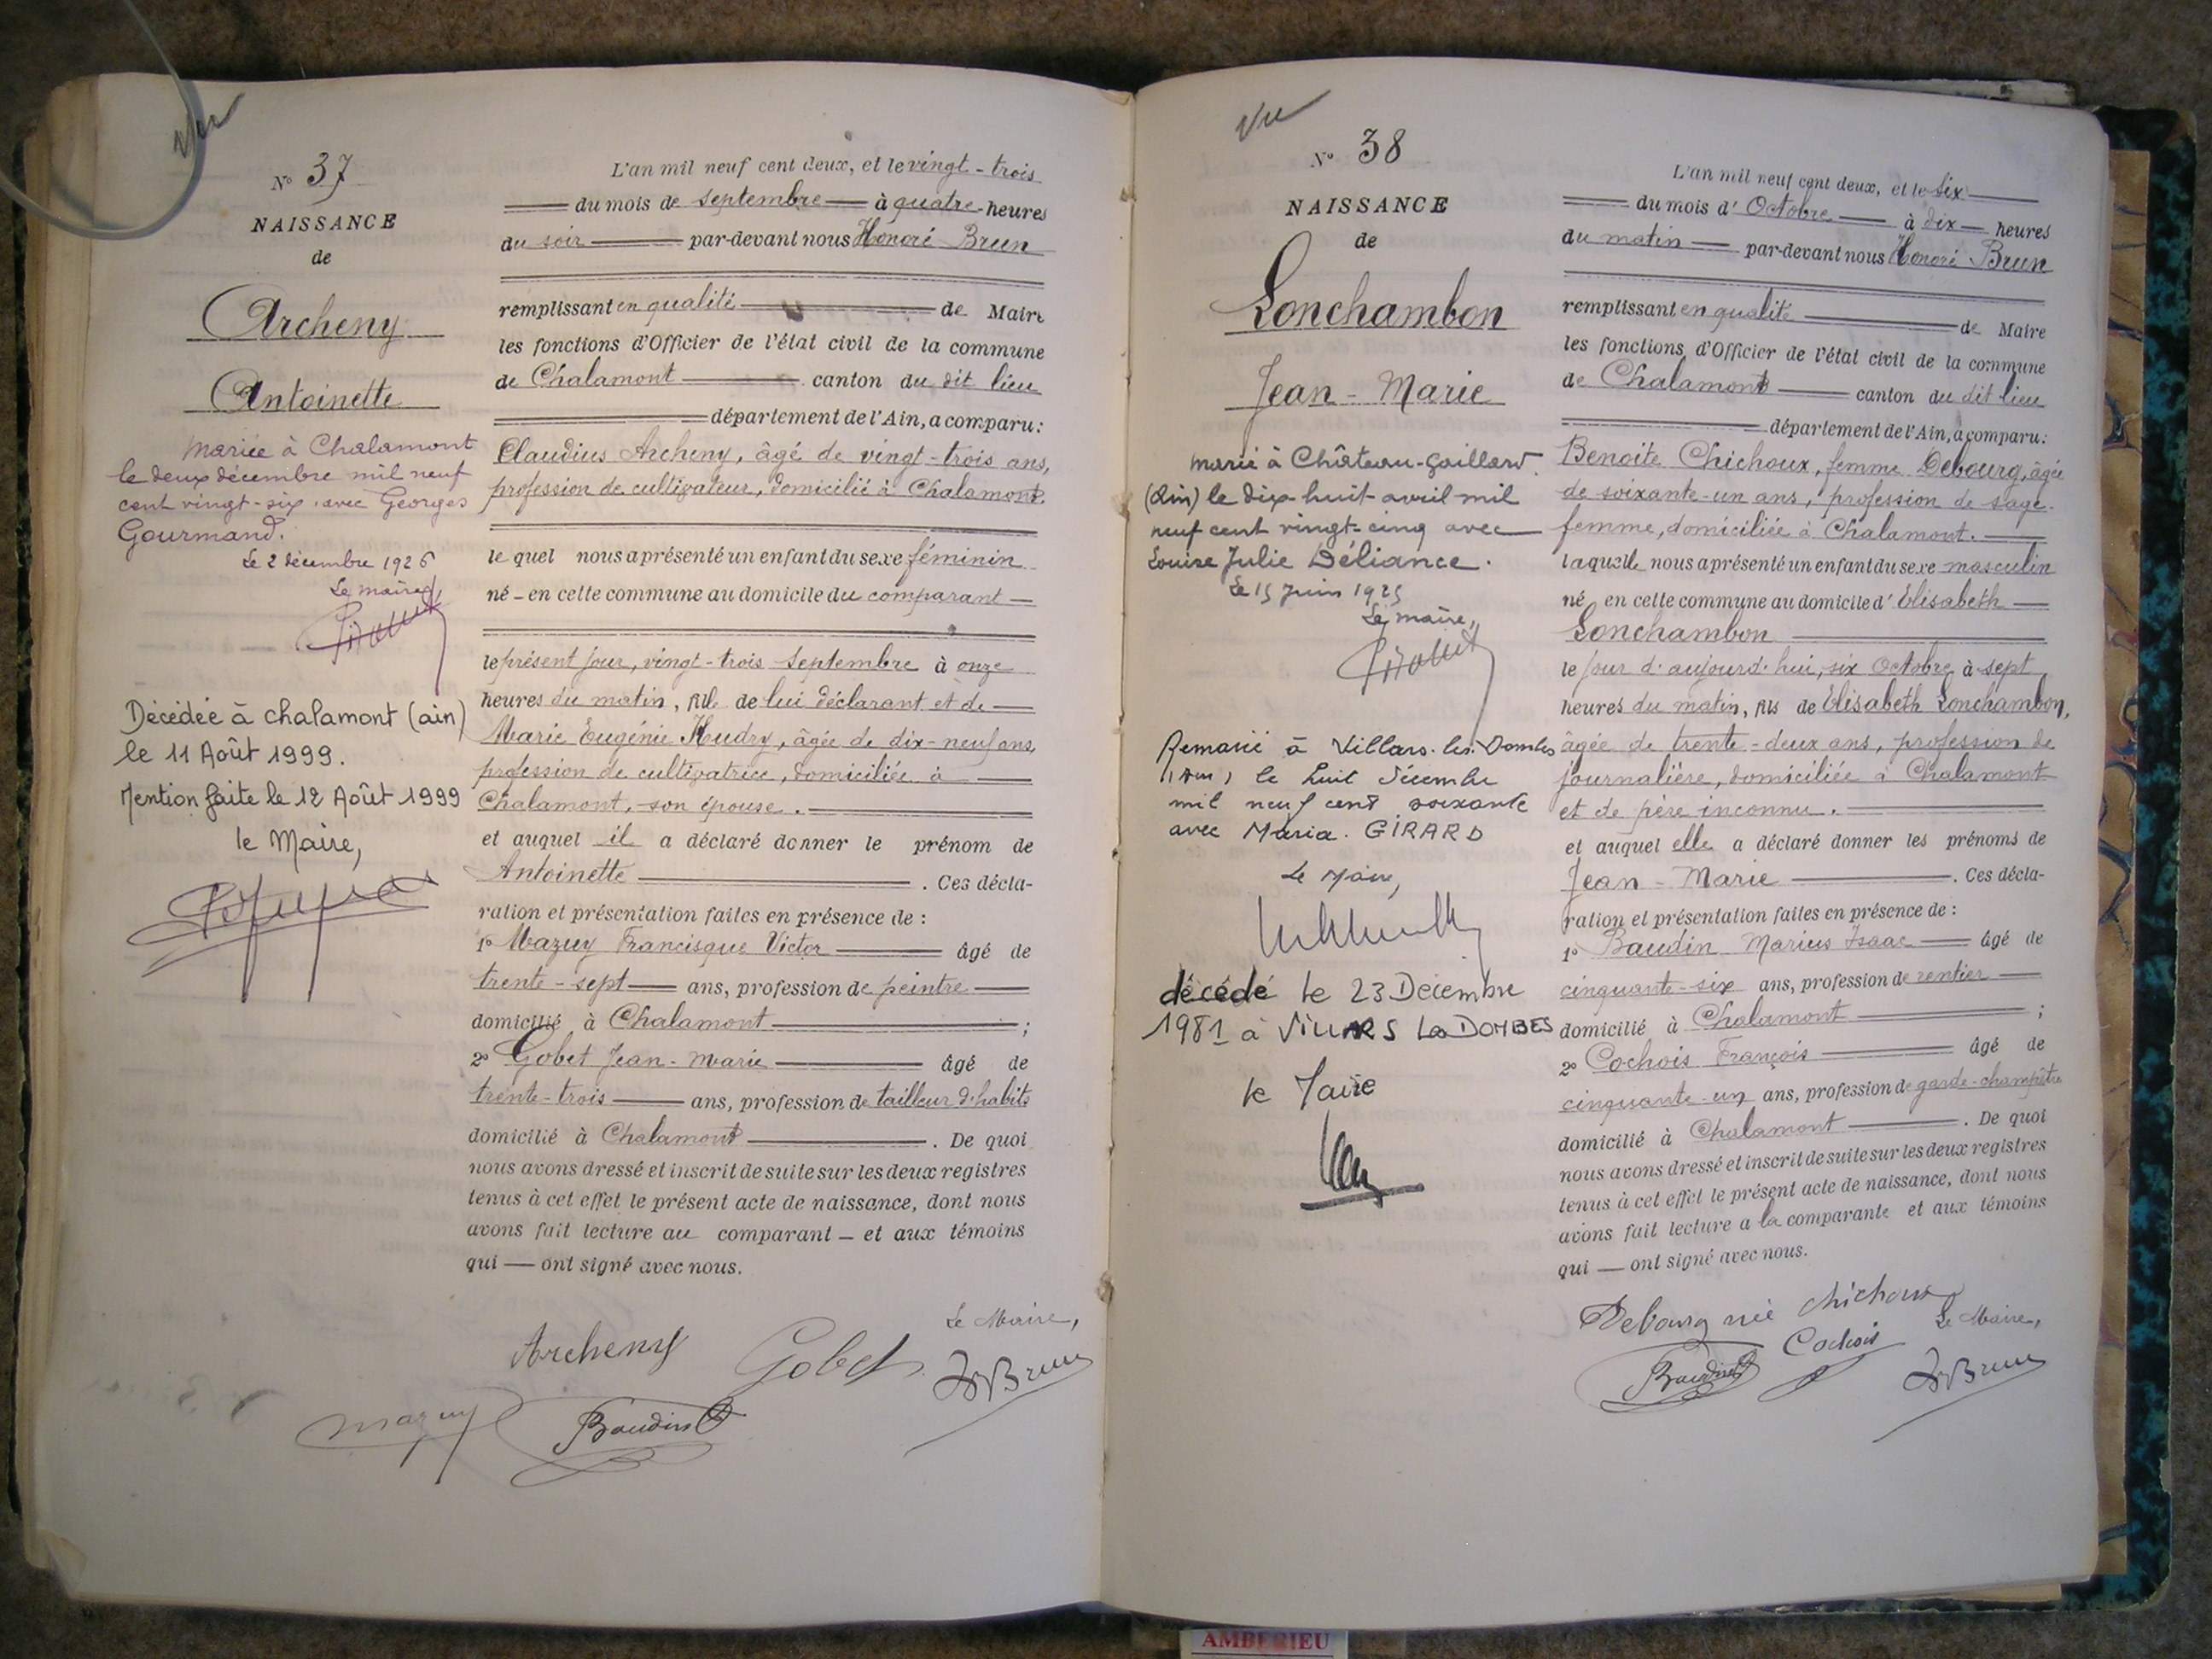 Vu
N° 37
NAISSANCE
de
Archeny
Antoinette
Mariée à Chalamont
le deux décembre mil neuf
cent vingt-six avec Georges
Gourmand.
Le 2 décembre 1926
Le maire,
Décédée à Chalamont (ain)
le 11 Août 1999.
Mention faite le 12 Août 1999
le Maire,
L'an mil neuf cent deux, et le vingt-trois
du mois de septembre à quatre heures
du soir par-devant nous Honoré Brun
remplissant en qualité de Maire
les fonctions d'Officier de l'état civil de la commune
de Chalamont canton du dit lieu
département de l'Ain, a comparu:
Claudius Archeny, âgé de vingt-trois ans,
profession de cultivateur, domicilié à Chalamont.
le quel nous a présenté un enfant du sexe féminin
né - en cette commune au domicile du comparant
le présent jour, vingt-trois Septembre à onze
heures du matin, fille de lui déclarant et de
Marie Eugénie Hudry, âgée de dix-neuf ans,
profession de cultivatrice, domiciliée à
Chalamont, son épouse.
et auquel il a déclaré donner le prénom de
Antoinette . Ces décla-
ration et présentation faites en présence de :
1° Mazuy Francisque Victor âgé de
trente-sept ans, profession de peintre
domicilié à Chalamont ;
2° Gobet Jean-Marie âgé de
trente-trois ans, profession de tailleur d'habits
domicilié à Chalamont . De quoi
nous avons dressé et inscrit de suite sur les deux registres
tenus à cet effet le présent acte de naissance, dont nous
avons fait lecture au comparant - et aux témoins
qui — ont signé avec nous.
Le Maire,
Archeny Gobet Hré Brun
Mazuy Baudin
Vu
N° 38
NAISSANCE
de
Lonchambon
Jean-Marie
Marié à Château-Gaillard
(Ain) le dix huit avril mil
neuf cent vingt-cinq avec
Louise Julie Déliance.
Le 15 Juin 1925
Le maire,
Remarié à Villars-les-Dombes
(Ain) le huit Décembre
mil neuf cent soixante
avec Maria GIRARD
Le Maire,
décédé le 23 Décembre
1981 à VILLARS Les DOMBES
le Maire
L'an mil neuf cent deux, et le Six
du mois d'Octobre à dix heures
du matin par-devant nous Honoré Brun
remplissant en qualité de Maire
les fonctions d'Officier de l'état civil de la commune
de Chalamont canton du dit lieu
département de l'Ain, a comparu:
Benoite Chichoux, femme Debourg, âgée
de soixante-un ans, profession de sage-
femme, domiciliée à Chalamont.
laquelle nous a présenté un enfant du sexe masculin
né en cette commune au domicile d'Elisabeth
Lonchambon
le jour d'aujourd'hui, six Octobre, à sept
heures du matin, fils de Elisabeth Lonchambon,
âgée de trente-deux ans, profession de
journalière, domiciliée à Chalamont
et de père inconnu.
et auquel elle a déclaré donner les prénoms de
Jean-Marie . Ces décla-
ration et présentation faites en présence de :
1° Baudin Marius Isaac âgé de
cinquante-six ans, profession de rentier
domicilié à Chalamont ;
2° Cochois François âgé de
cinquante-un ans, profession de garde-champêtre
domicilié à Chalamont . De quoi
nous avons dressé et inscrit de suite sur les deux registres
tenus à cet effet le présent acte de naissance, dont nous
avons fait lecture a la comparante et aux témoins
qui — ont signé avec nous.
Debourg née Chichoux
Cochois Le Maire,
Baudin Hré Brun
AMBERIEU